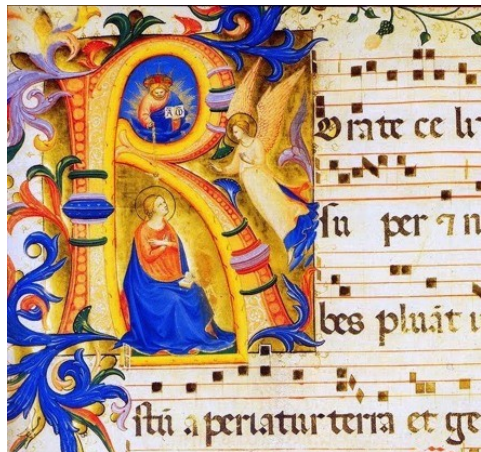 Rorate ce li
su per ⁊ n
bes pluāt
stū aperiatur terra et ge